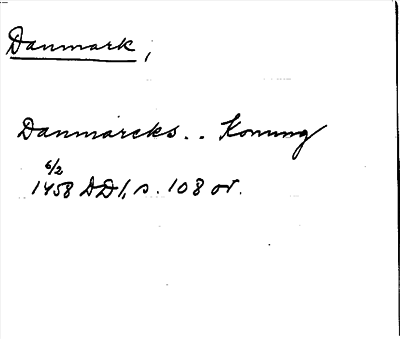 Danmark,
Danmarcks.. Konung
6/2
1458 DD1, s. 108 or.